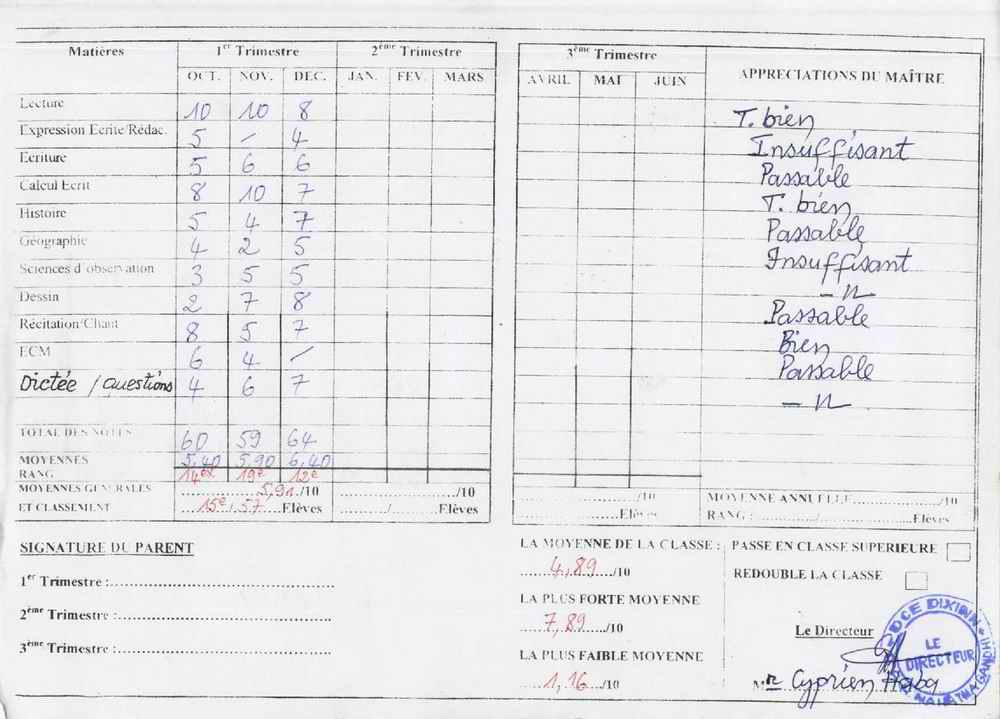 Matières 1er Trimestre 2ème Trimestre 3ème Trimestre APPRECIATIONS DU MAÎTRE
OCT. NOV. DEC. JAN. FEV. MARS AVRIL MAI JUIN
Lecture 10 10 8 T. bien
Expression Ecrite/Rédac. 5 – 4 Insuffisant
Ecriture 5 6 6 Passable
Calcul Ecrit 8 10 7 T. bien
Histoire 5 4 7 Passable
Géographie 4 2 5 Insuffisant
Sciences d'observation 3 5 5 – n –
Dessin 2 7 8 Passable
Récitation/Chant 8 5 7 Bien
ECM 6 4 – Passable
Dictée / questions 4 6 7 – n –
TOTAL DES NOTES 60 59 64
MOYENNES 5,40 5,90 6,40
RANG 14ex 19e 12e
MOYENNES GENERALES 5,91./10 ............/10 ............/10 MOYENNE ANNUELLE............/10
ET CLASSEMENT ...15e / 57....Elèves ........./.........Elèves ............Elèves RANG : ........../..........Elèves
SIGNATURE DU PARENT
1er Trimestre :............
2ème Trimestre :............
3ème Trimestre :............
LA MOYENNE DE LA CLASSE :
4,89/10
LA PLUS FORTE MOYENNE
7,89/10
LA PLUS FAIBLE MOYENNE
1,16/10
PASSE EN CLASSE SUPERIEURE
REDOUBLE LA CLASSE
Le Directeur
DCE DIXINN
LE
DIRECTEUR
MAHATMA GANDHI
Mr Cyprien Haba